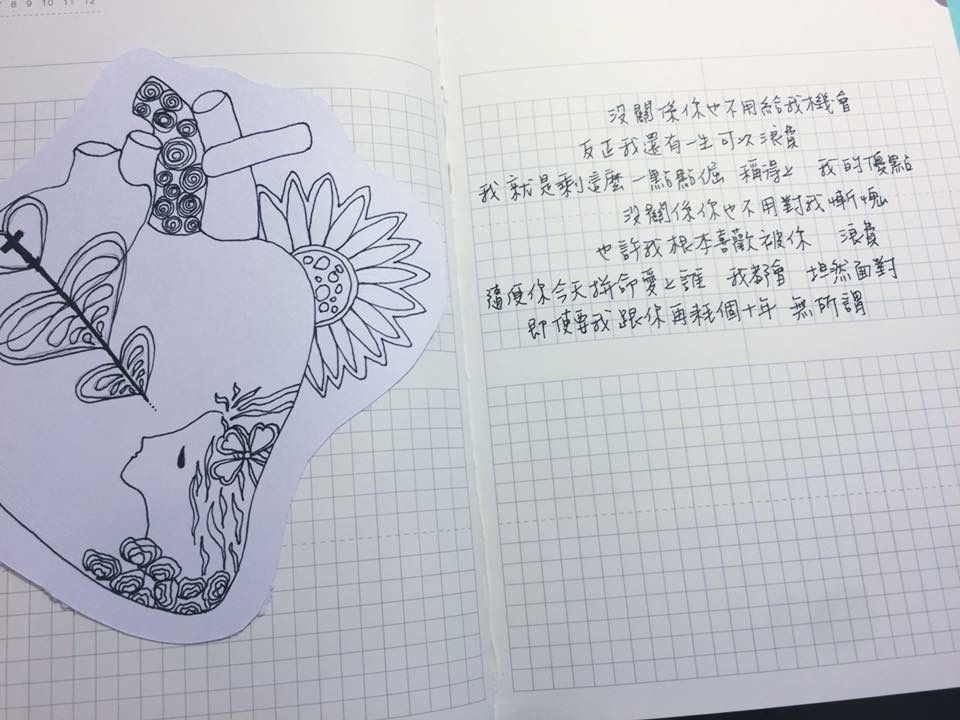 8 9 10 11 12
沒關係你也不用給我機會
反正我還有一生可以浪費
我就是剩這麼一點點倔 稱得上 我的優點
沒關係你也不用對我慚愧
也許我根本喜歡被你 浪費
隨便你今天拼命愛上誰 我都會 坦然面對
即使要我跟你再耗個十年 無所謂